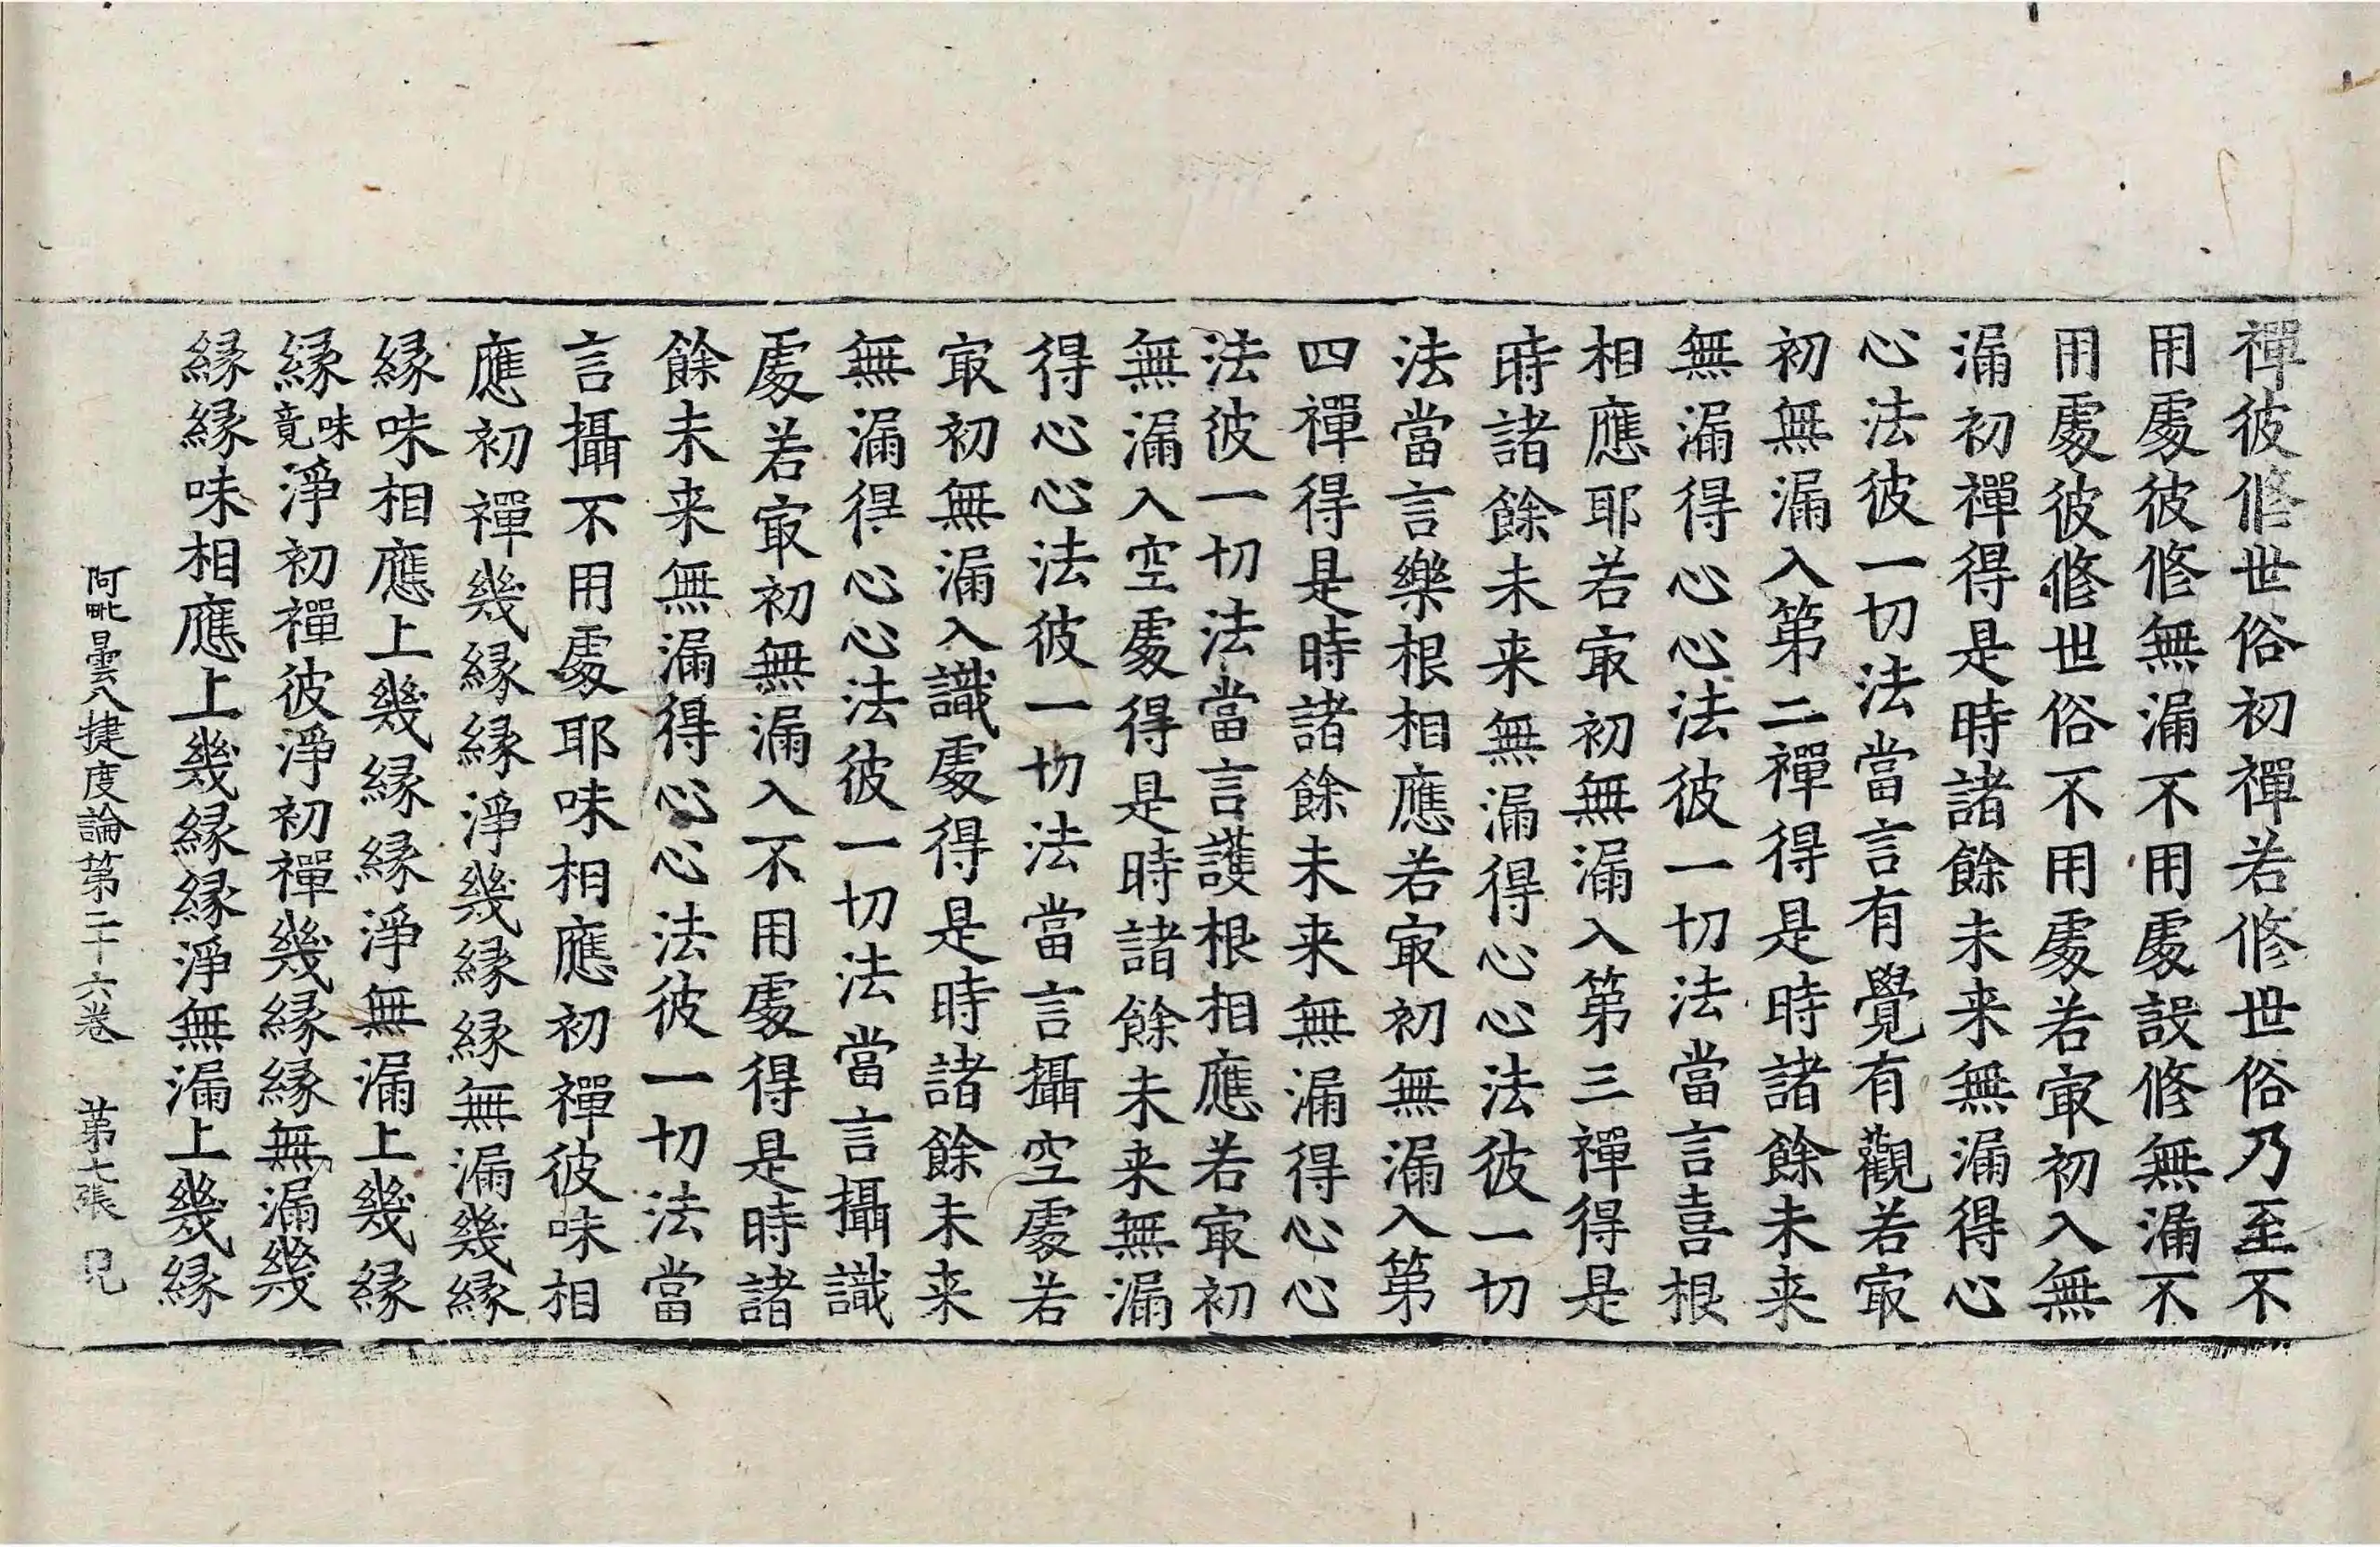 禪彼脩世俗初禪若脩世俗乃至不
用處彼脩無漏不用處設脩無漏不
用處彼脩世俗不用處若㝡初入無
漏初禪得是時諸餘未来無漏得心
心法彼一切法當言有覺有觀若㝡
初無漏入第二禪得是時諸餘未来
無漏得心心法彼一切法當言喜根
相應耶若㝡初無漏入第三禪得是
時諸餘未来無漏得心心法彼一切
法當言樂根相應若㝡初無漏入第
四禪得是時諸餘未来無漏得心心
法彼一切法當言護根相應若㝡初
無漏入空處得是時諸餘未来無漏
得心心法彼一切法當言攝空處若
㝡初無漏入識處得是時諸餘未来
無漏得心心法彼一切法當言攝識
處若㝡初無漏入不用處得是時諸
餘未来無漏得心心法彼一切法當
言攝不用處耶味相應初禪彼味相
應初禪幾縁縁淨幾縁縁無漏幾縁
縁味相應上幾縁縁淨無漏上幾縁
縁味竟淨初禪彼淨初禪幾縁縁無漏幾
縁縁味相應上幾縁縁淨無漏上幾縁
阿毗曇八揵度論第二十六卷 第七張 皃